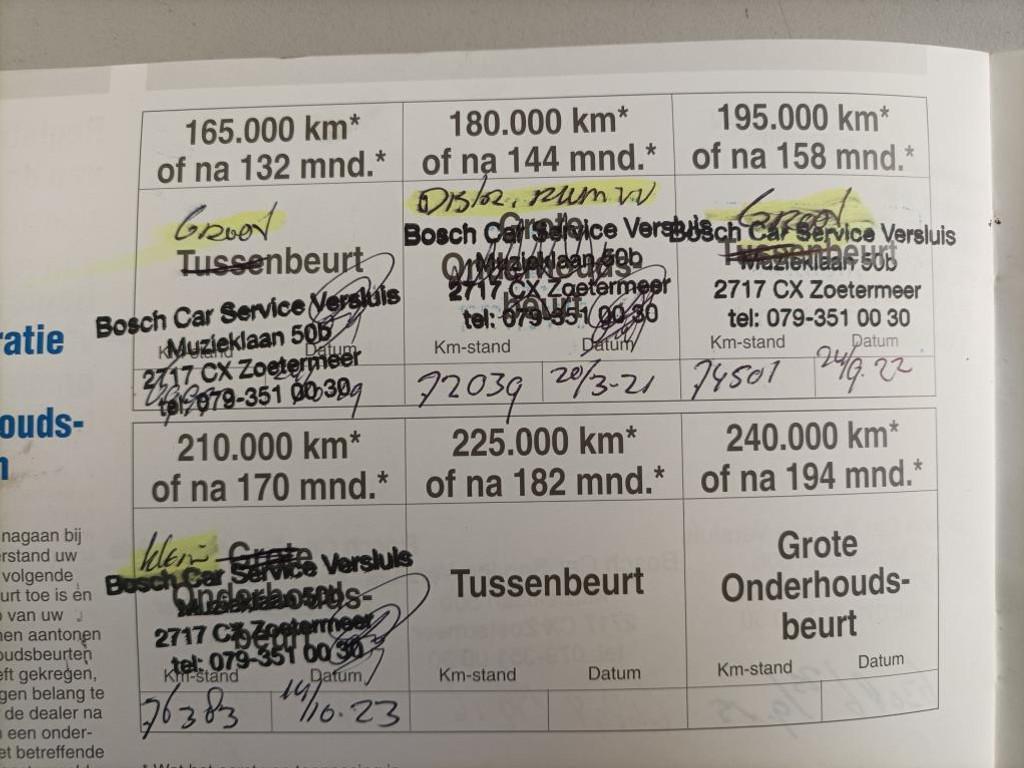 165.000 km*
of na 132 mnd.*
Groot
Tussenbeurt
Bosch Car Service Versluis
Muzieklaan 50b
2717 CX Zoetermeer
tel: 079-351 00 30
Km-stand Datum
180.000 km*
of na 144 mnd.*
Grote
Onderhouds-
beurt
Bosch Car Service Versluis
Muzieklaan 50b
2717 CX Zoetermeer
tel: 079-351 00 30
Km-stand Datum
72039 20/3-21
195.000 km*
of na 158 mnd.*
Groot
Tussenbeurt
Bosch Car Service Versluis
Muzieklaan 50b
2717 CX Zoetermeer
tel: 079-351 00 30
Km-stand Datum
74501 24/9.22
210.000 km*
of na 170 mnd.*
klein
Grote
Onderhouds-
beurt
Bosch Car Service Versluis
Muzieklaan 50b
2717 CX Zoetermeer
tel: 079-351 00 30
Km-stand Datum
76383 14/10.23
225.000 km*
of na 182 mnd.*
Tussenbeurt
Km-stand Datum
240.000 km*
of na 194 mnd.*
Grote
Onderhouds-
beurt
Km-stand Datum
ratie
ouds-
nagaan bij
erstand uw
volgende
urt toe is én
van uw
nen aantonen
oudsbeurten
eft gekregen,
gen belang te
de dealer na
een onder-
et betreffende